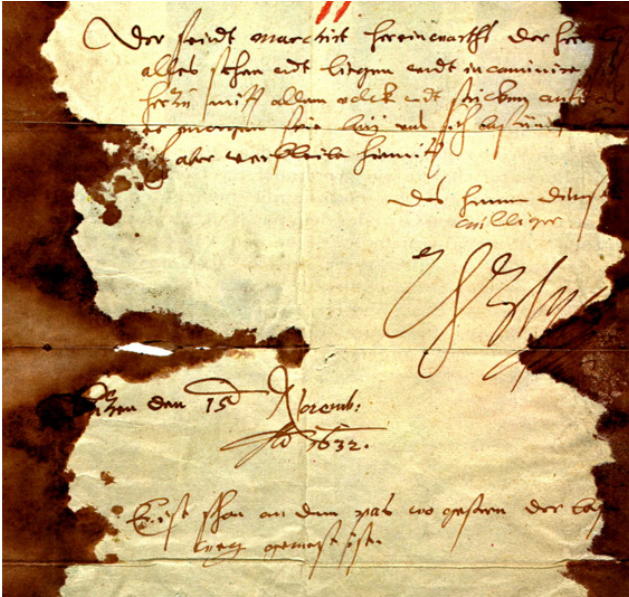 Der feindt marchirt hereinwarths der herr
alles sthen undt ligen undt incaminire
herzu mitt allem volck undt stücken
er morgen frue bey uns sich befünd
ich aber verbleibe hiemitt
des herrn dienst
williger
zen den 15 Novemb:
Ao 1632.
Er ist schon an dem pas wo gestern der
weg gewest ist.